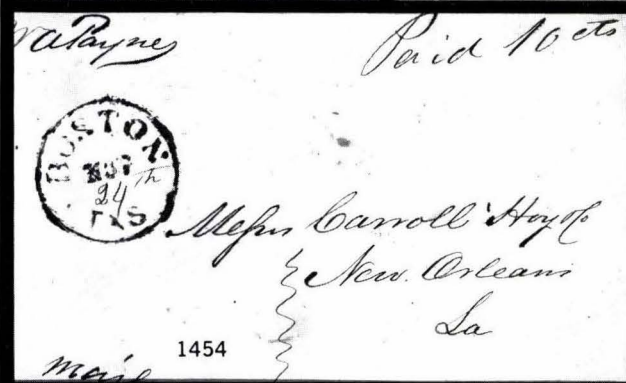 Payne
Paid 10 cts
BOSTON
24th
TXS
Messrs Carroll Hoy & Co
New. Orleans
La
1454